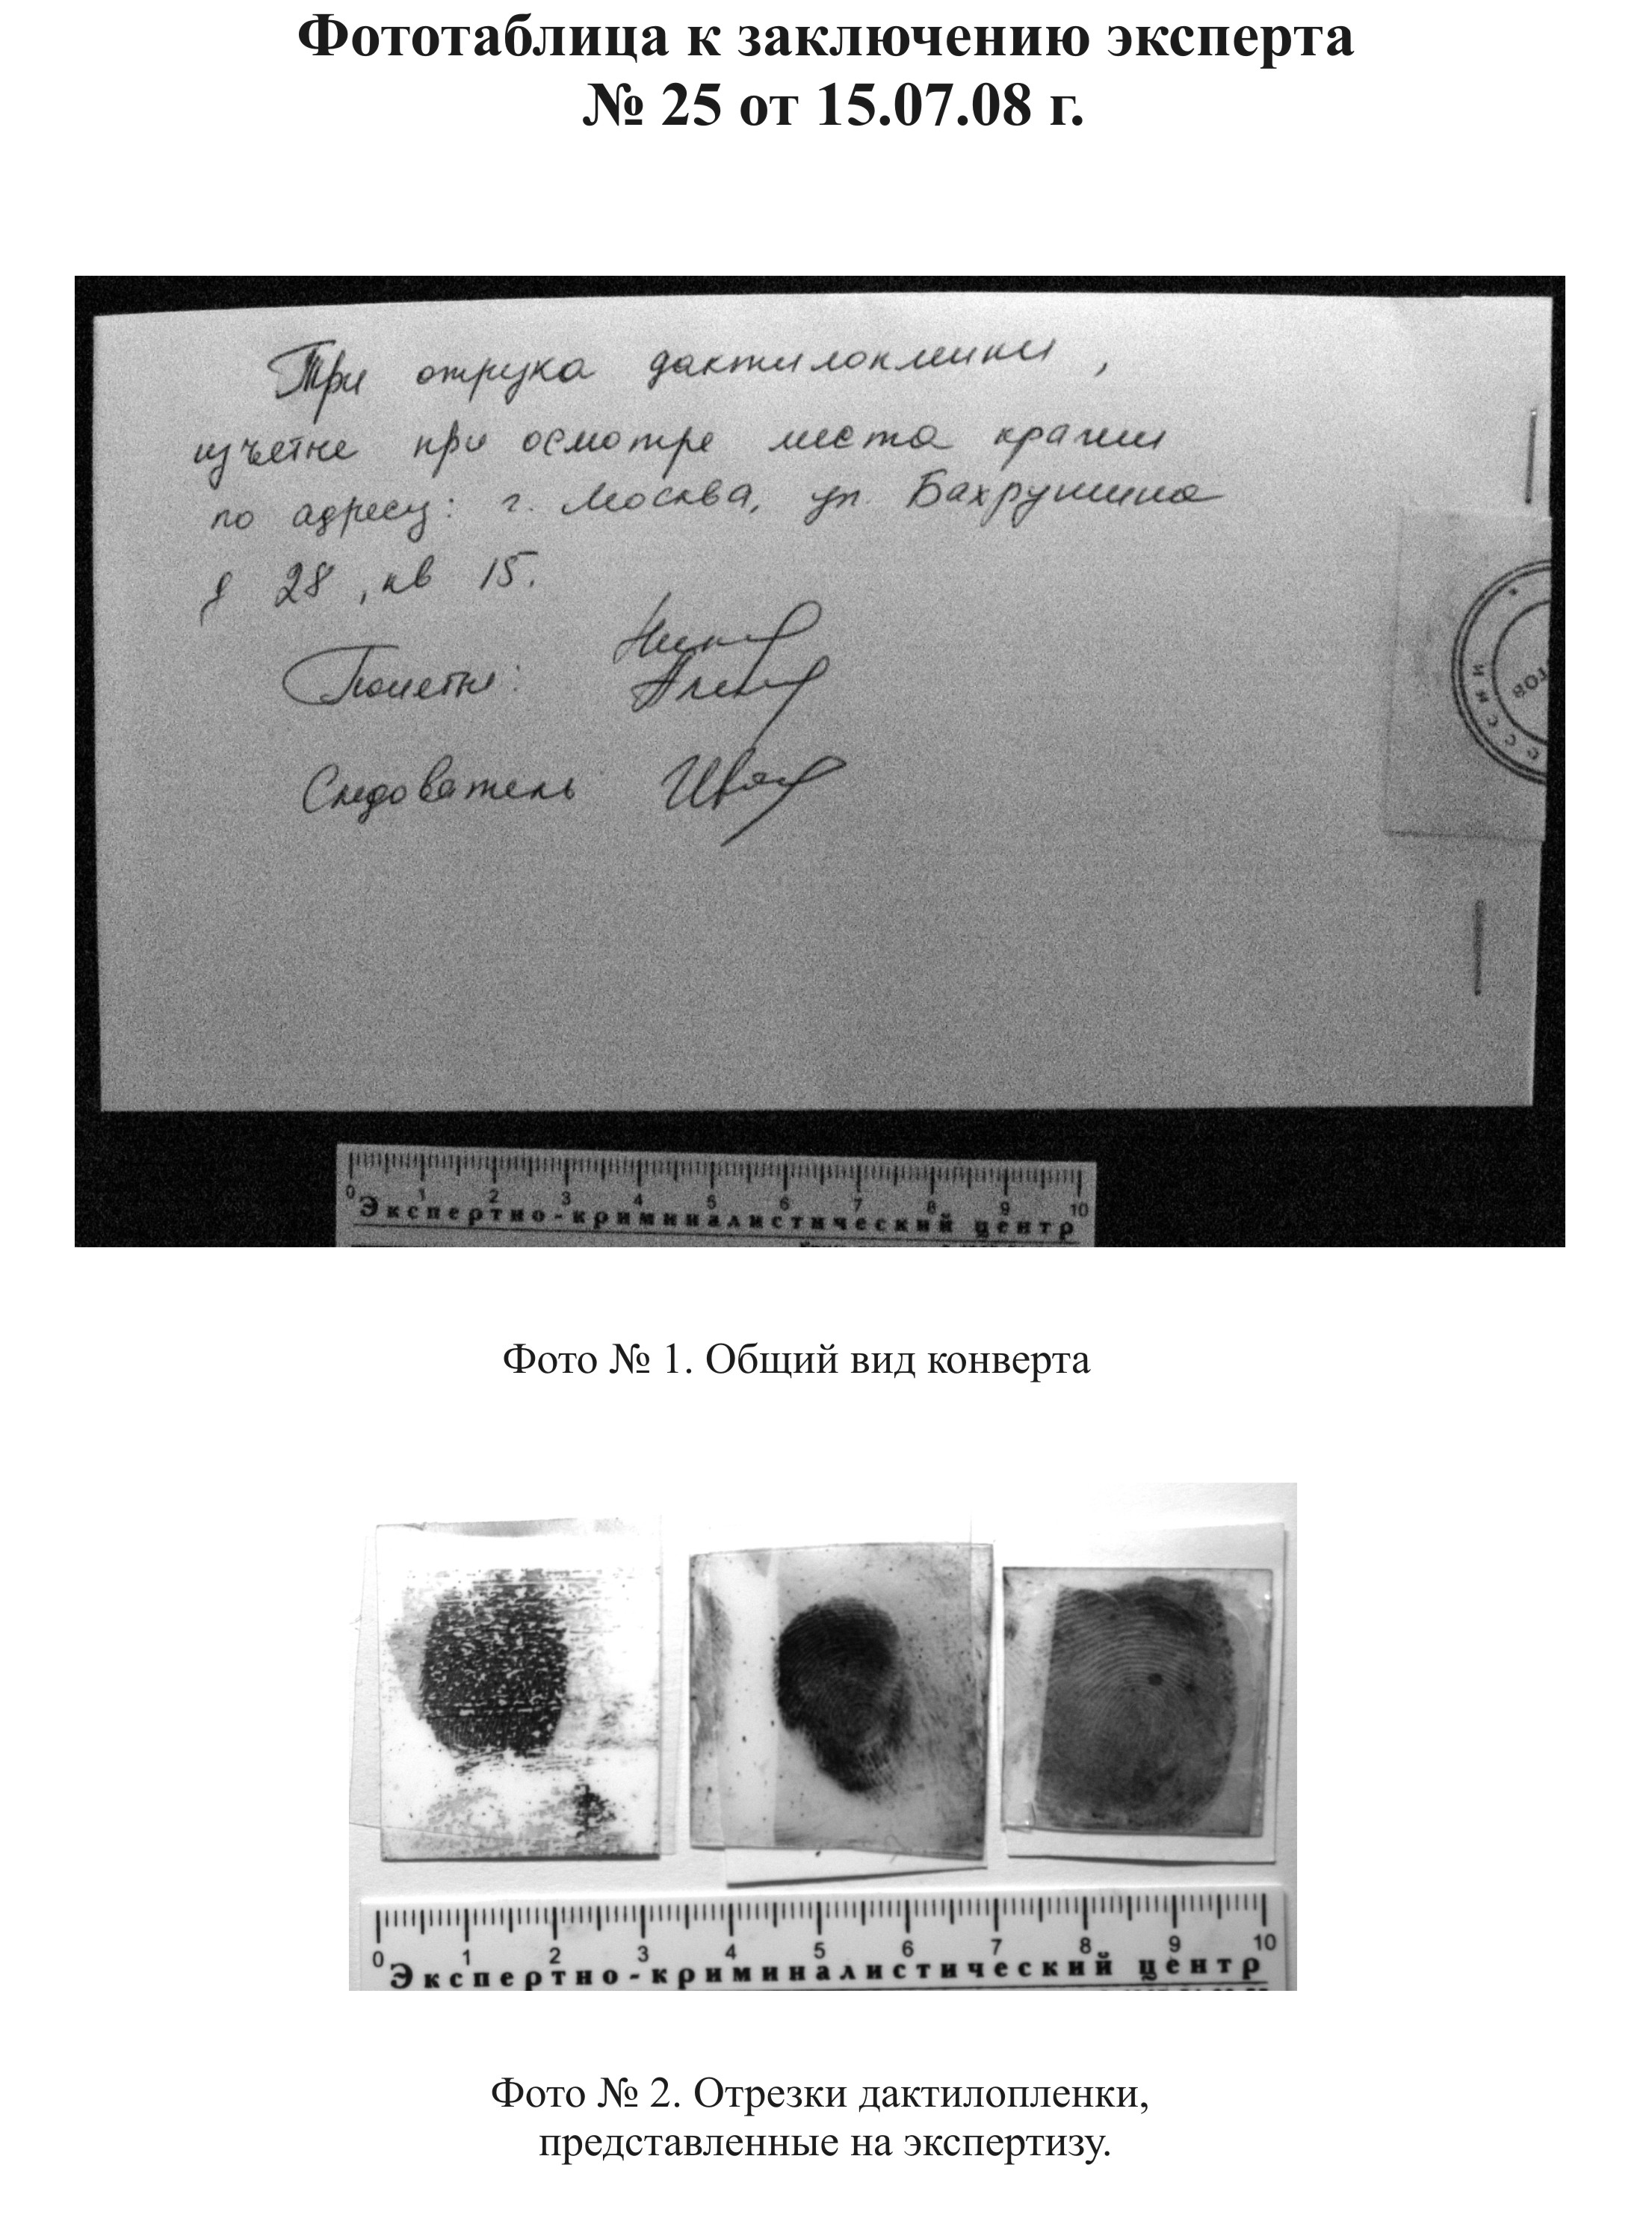 Фототаблица к заключению эксперта
№ 25 от 15.07.08 г.
Три отрезка дактилопленки,
изъятые при осмотре места кражи
по адресу: г. Москва, ул. Бахрушина
д 28, кв 15.
Понятые:
Следователь
ССИИ
ТОВ
0 1 2 3 4 5 6 7 8 9 10
Экспертно-криминалистический центр
Фото № 1. Общий вид конверта
0 1 2 3 4 5 6 7 8 9 10
Экспертно-криминалистический центр
Фото № 2. Отрезки дактилопленки,
представленные на экспертизу.